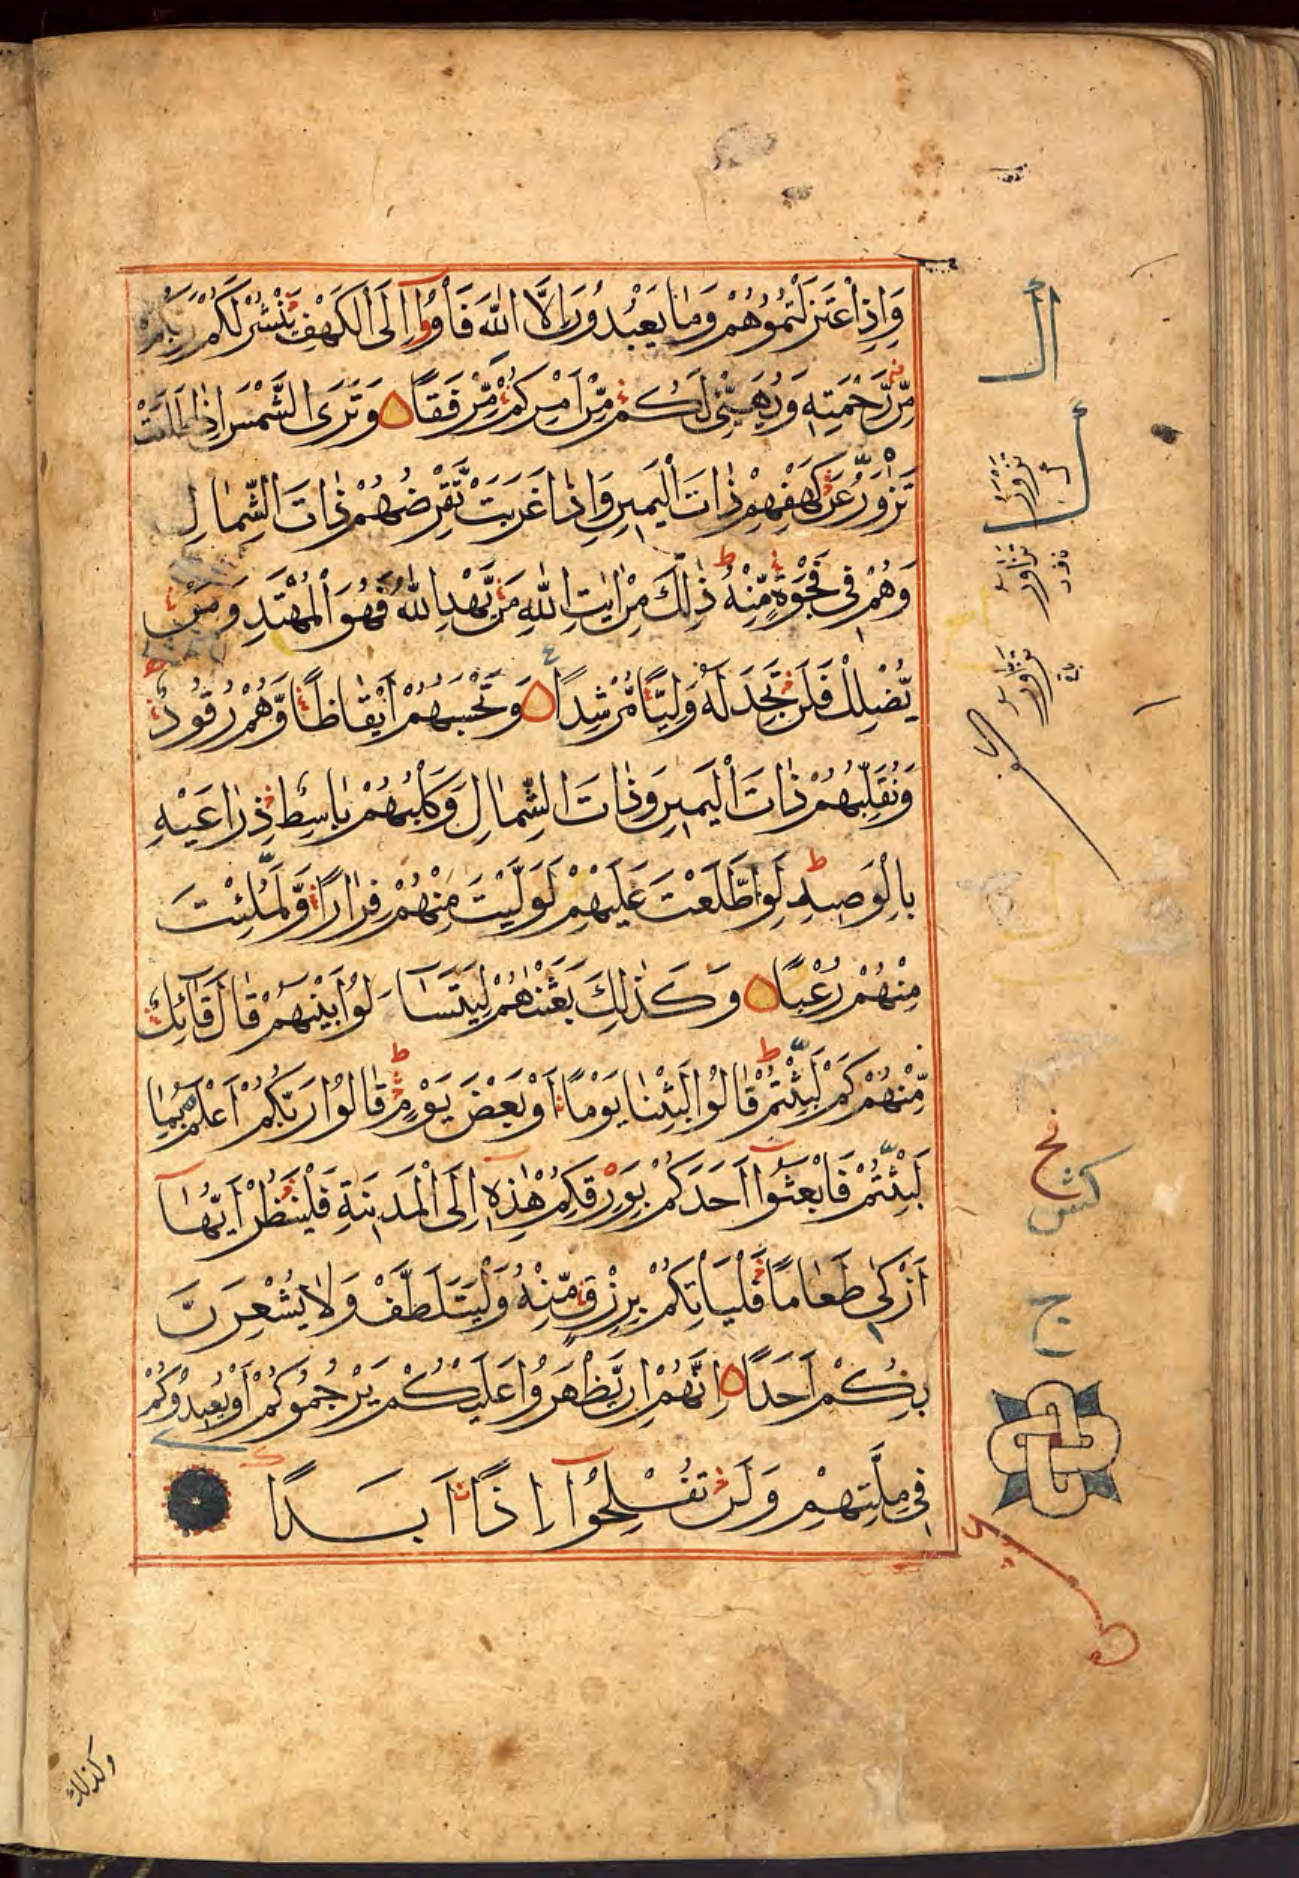 وَاِذِ اعْتَزَلْتُمُوْهُمْ وَمَا يَعْبُدُوْنَ اِلَّا اللّٰهَ فَأْوُوْٓا اِلَى الْكَهْفِ يَنْشُرْ لَكُمْ رَبُّكُمْ
مِّنْ رَّحْمَتِهٖ وَيُهَيِّئْ لَكُمْ مِّنْ اَمْرِكُمْ مِّرْفَقًا وَتَرَى الشَّمْسَ اِذَا طَلَعَتْ
تَزْوَرُّ عَنْ كَهْفِهِمْ ذَاتَ الْيَمِيْنِ وَاِذَا غَرَبَتْ تَّقْرِضُهُمْ ذَاتَ الشِّمَالِ
وَهُمْ فِيْ فَجْوَةٍ مِّنْهُ ط ذٰلِكَ مِنْ اٰيٰتِ اللّٰهِ مَنْ يَّهْدِ اللّٰهُ فَهُوَ الْمُهْتَدِ وَمَنْ
يُّضْلِلْ فَلَنْ تَجِدَ لَهٗ وَلِيًّا مُّرْشِدًا وَتَحْسَبُهُمْ اَيْقَاظًا وَّهُمْ رُقُوْدٌ
وَنُقَلِّبُهُمْ ذَاتَ الْيَمِيْنِ وَذَاتَ الشِّمَالِ وَكَلْبُهُمْ بَاسِطٌ ذِرَاعَيْهِ
بِالْوَصِيْدِ ط لَوِ اطَّلَعْتَ عَلَيْهِمْ لَوَلَّيْتَ مِنْهُمْ فِرَارًا وَّلَمُلِّئْتَ
مِنْهُمْ رُعْبًا وَكَذٰلِكَ بَعَثْنٰهُمْ لِيَتَسَآءَلُوْا بَيْنَهُمْ قَالَ قَآئِلٌ
مِّنْهُمْ كَمْ لَبِثْتُمْ ط قَالُوْا لَبِثْنَا يَوْمًا اَوْ بَعْضَ يَوْمٍ ط قَالُوْا رَبُّكُمْ اَعْلَمُ بِمَا
لَبِثْتُمْ فَابْعَثُوْٓا اَحَدَكُمْ بِوَرِقِكُمْ هٰذِهٖٓ اِلَى الْمَدِيْنَةِ فَلْيَنْظُرْ اَيُّهَآ
اَزْكٰى طَعَامًا فَلْيَأْتِكُمْ بِرِزْقٍ مِّنْهُ وَلْيَتَلَطَّفْ وَلَا يُشْعِرَنَّ
بِكُمْ اَحَدًا اِنَّهُمْ اِنْ يَّظْهَرُوْا عَلَيْكُمْ يَرْجُمُوْكُمْ اَوْ يُعِيْدُوْكُمْ
فِيْ مِلَّتِهِمْ وَلَنْ تُفْلِحُوْٓا اِذًا اَبَدًا
تَزْوَرُّ
تَزَاوَرُ
وكذلك